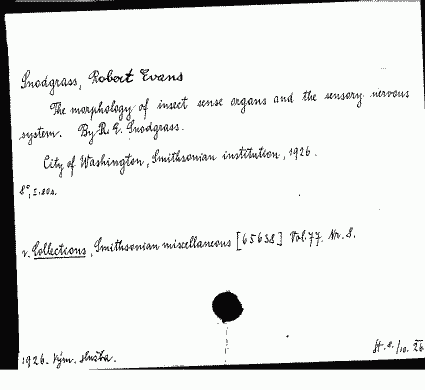 Snodgrass, Robert Evans
The morphology of insect sense organs and the sensory nervous
system. By R. E. Snodgrass.
City of Washington, Smithsonian institution, 1926.
8°, I. 80 s.
v. Collections, Smithsonian miscellaneous [65638] Vol. 77. Nr. 8.
1926. Vým. služba.
26